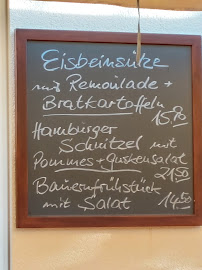 Eisbeinsülze
mit Remoulade +
Bratkartoffeln
15.90
Hamburger
Schnitzel mit
Pommes + Gurkensalat
21.50
Bauernfrühstück
mit Salat 14.50